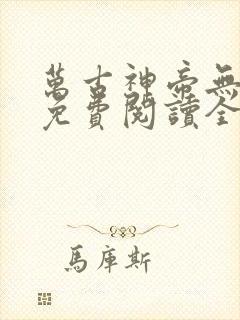 萬古神帝無
免費閱讀全
馬庫斯